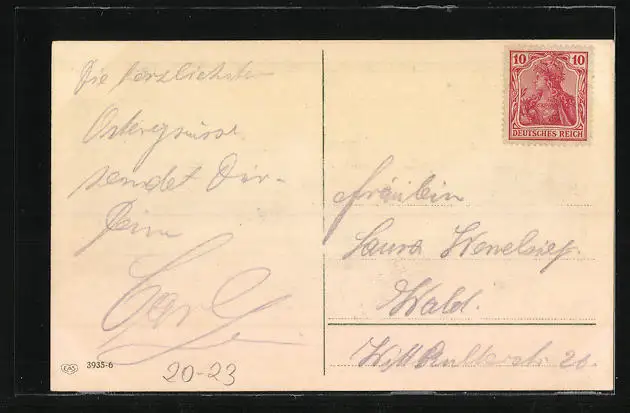 Die herzlichsten
Ostergrüsse
sendet Dir
Dein
Carl
20-23
EAS 3935-6
10 10
DEUTSCHES REICH
Fräulein
Laura
Wald.
20.